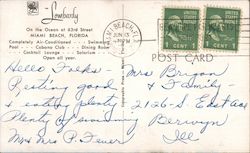 The Lombardy
On the Ocean at 63rd Street
MIAMI BEACH, FLORIDA
Completely Air Conditioned - Swimming
Pool - Cabana Club - Dining Room
Cocktail Lounge - Solarium
Open all year.
MIAMI BEACH, FL
JUN 13
PM
UNITED STATES POSTAGE
1 CENT 1
UNITED STATES POSTAGE
1 CENT 1
POST CARD
Hello Folks -
Resting good
& eating plenty
Plenty of swimming
Mr & Mrs P. Feuer
Mrs Brigan
& Family -
2126 - S. East Ave
Berwyn
Ill